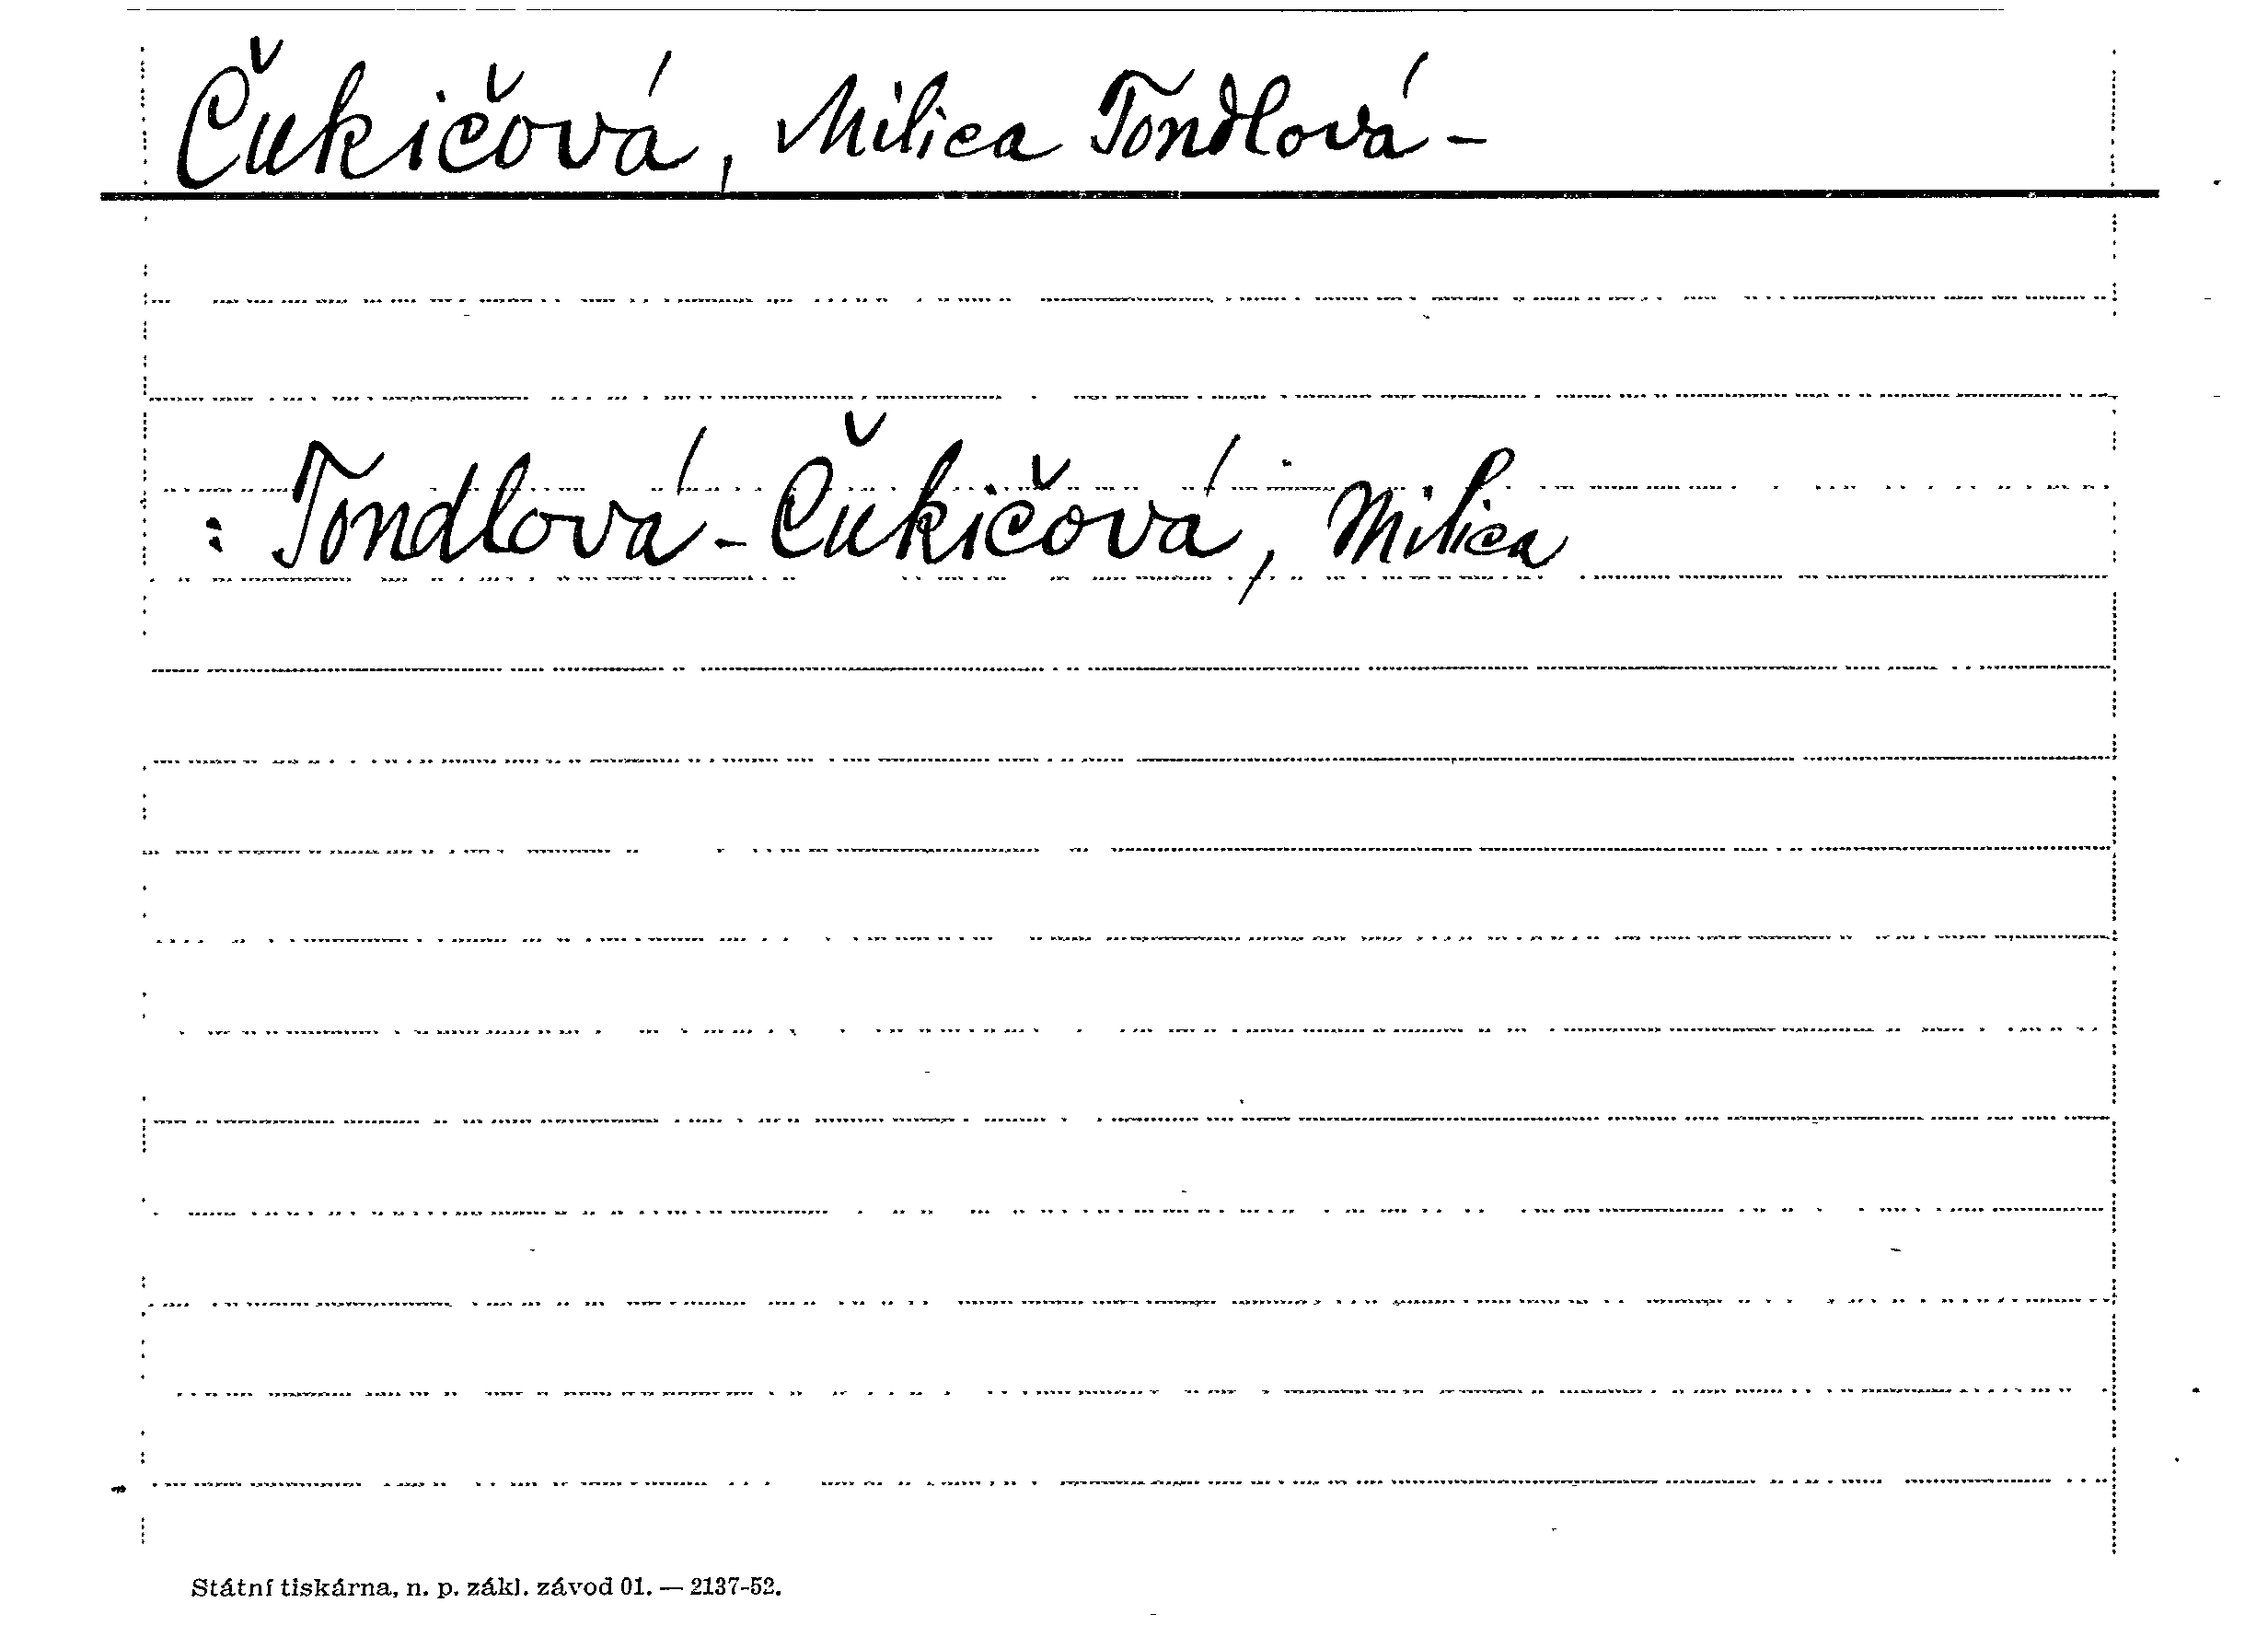 Čukičová, Milica Tondlová-
: Tondlová-Čukičová, Milica
Státní tiskárna, n. p. zákl. závod 01. — 2137-52.